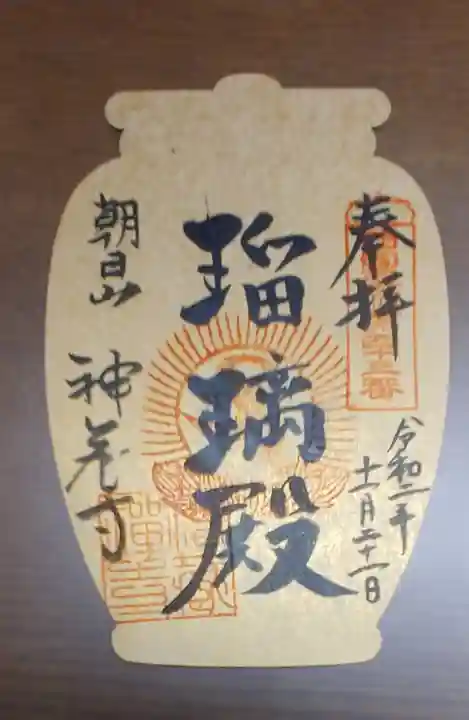 奉拝
令和二年
十一月二十一日
瑠璃殿
朝日山
神蔵寺